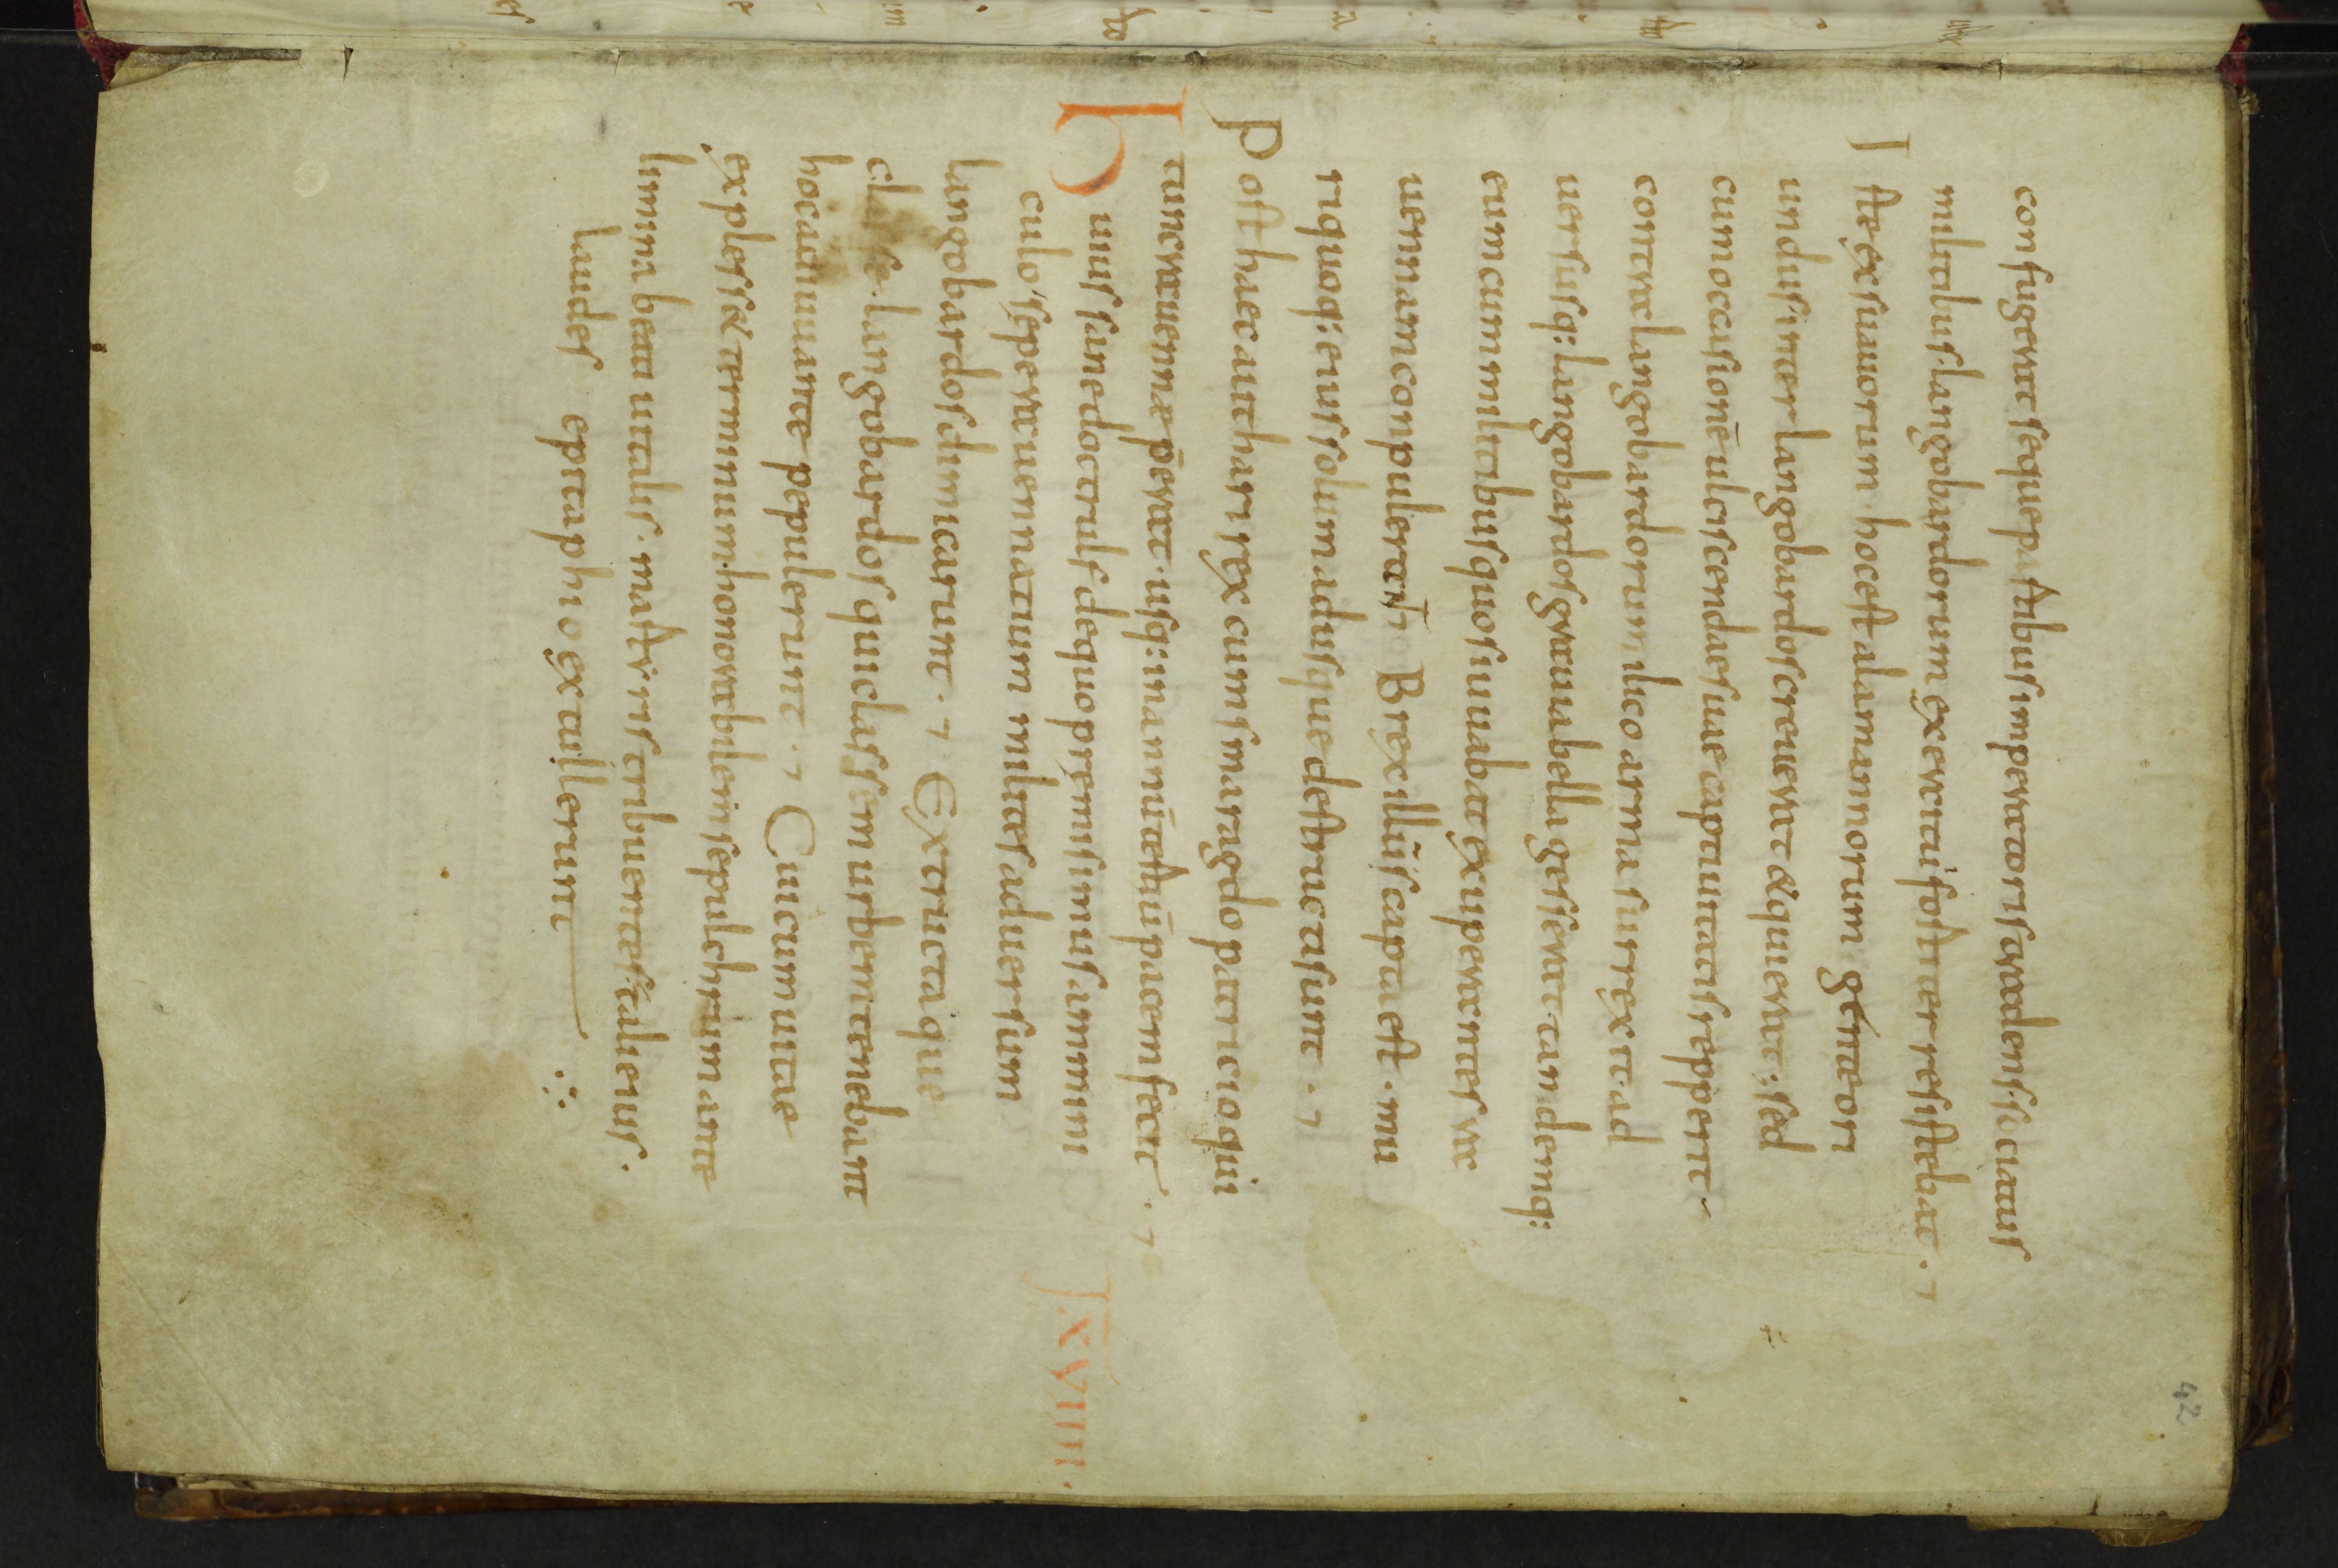 42
confugerat sequepartibus imperatoris ravadensis ociatus
militibus langobardorum exercitui fortiter resistebat.
Iste ex suavorum hoc est alamannorum genere ori
undus inter langobardos creverat & quierat: sed
cum occasionē ulciscendae suae captivitatis repperit
contra langobardorum ilico arma surrexit. ad
versusq: langobardos gravia bella gesserat tandemq:
eum cum militibus quos iuvabat exuperantes ra
vennam conpulerant Brexillus capta est. mu
riquoq: eius solum ad usque destructi sunt.
Post haec authari rex cum smaragdo patricio qui
tunc ravennae p̄erat. usq: in annū tertiū pacem fecit.
Huius sane doctrulf de quo premisimus ammini XVIIII.
culo sepe ravennatum milites adversum
langobardos dimicarunt. Extructaque
classe langobardos qui classem urbem tenebant
hoc adiuvante pepulerunt. Cui cum vitae
explesset terminum honorabilem sepulchrum ante
limina beati vitalis martiris tribuentes. tali eius.
laudes epitaphio extullerunt